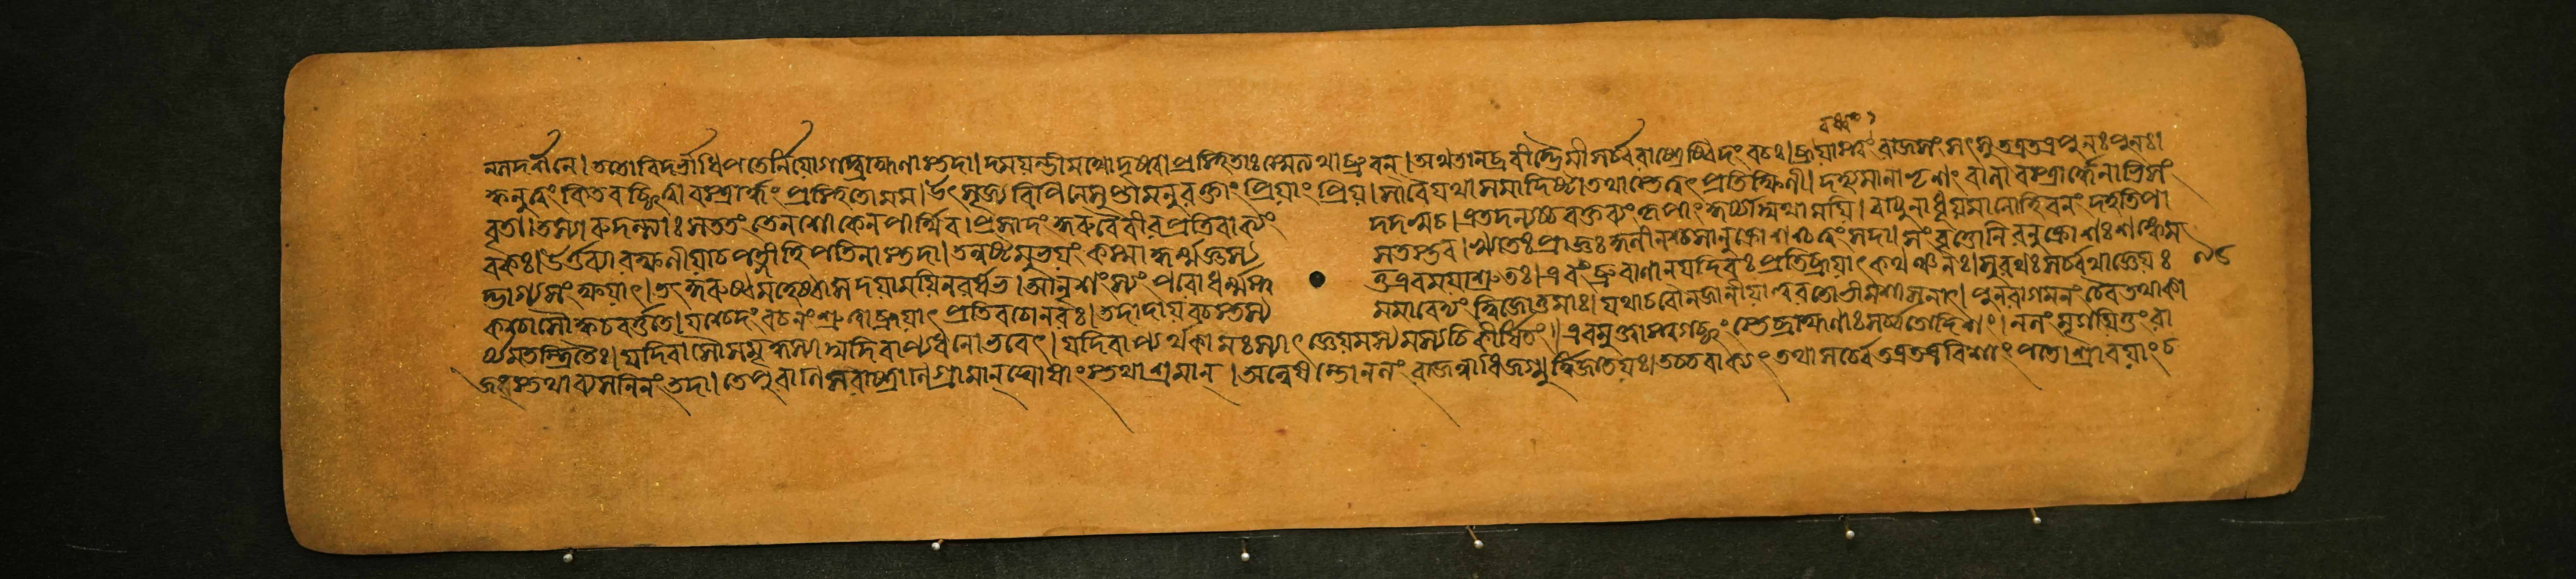 নলদর্শনে। ততো বিদর্ভাধিপতের্নিয়োগাদ্ব্রাহ্মণাস্তদা। দময়ন্তীমথো দৃষ্ট্বা প্রস্থিতাঃ স্মেত্যথাব্রুবন্। অথ তানব্রবীদ্ভৈমী সর্ব্বরাষ্ট্রেষ্বিদং বচঃ। রাজসংসৎসু তত্র তত্র পুনঃ পুনঃ।
ক্ব নু ত্বং কিতব চ্ছিত্ত্বা বস্ত্রার্দ্ধং প্রস্থিতো মম। উৎসৃজ্য বিপিনে সুপ্তামনুরক্তাং প্রিয়াং প্রিয়। সা বৈ যথা সমাদিষ্টা তথাস্তে ত্বৎপ্রতীক্ষিণী। দহ্যমানা ভৃশং বালা বস্ত্রার্দ্ধেনাভিসং
বৃতা। তস্যা রুদন্ত্যাঃ সততং তেন শোকেন পার্থিব। প্রসাদং কুরু বৈ বীর প্রতিবাক্যং দদস্ব চ। এতদন্যচ্চ বক্তব্যং কৃপাং কুর্য্যাদ্যথা ময়ি। বায়ুনা ধূয়মানো হি বনং দহতি পা
বকঃ। ভর্ত্তব্যা রক্ষণীয়া চ পত্নী হি পতিনা সদা। তন্নষ্টমুভয়ং কস্মাদ্ধর্ম্মজ্ঞস্য সতস্তব। খ্যাতঃ প্রাজ্ঞঃ কুলীনশ্চ সানুক্রোশশ্চ ত্বং সদা। সংবৃত্তো নিরনুক্রোশঃ শঙ্কে ম
দ্ভাগ্যসংক্ষয়াৎ। কুরুষ্ব মহেষ্বাস দয়াং ময়ি নরর্ষভ। আনৃশংস্যং পরো ধর্ম্মস্ত্বত্ত এব ময়া শ্রুতঃ। এবং ব্রুবাণান্ যদি বঃ প্রতিব্রূয়াৎ কথঞ্চন। স নরঃ সর্ব্বথা জ্ঞেয়ঃ
কশ্চাসৌ ক্ব চ বর্ত্ততে। যচ্চেদং বচনং শ্রুত্বা ব্রূয়াৎ প্রতিবচো নরঃ। তদাদায় বচস্তস্য মমাবেদ্যং দ্বিজোত্তমাঃ। যথা চ বো ন জানীয়াচ্চরতো ভীমশাসনাৎ। পুনরাগমনং চৈব তথা কা
র্য্যমতন্দ্রিতৈঃ। যদি বাসৌ সমৃদ্ধঃ স্যাদ্যদি বাপ্যধনো ভবেৎ। যদি বাপ্যর্থকামঃ স্যাৎ জ্ঞেয়মস্য চিকীর্ষিতং॥ এবমুক্তাস্ত্বগচ্ছংস্তে ব্রাহ্মণাঃ সর্ব্বতোদিশং। নলং মৃগয়িতুং রা
জংস্তথা ব্যসনিনং তদা। তে পুরাণি সরাষ্ট্রাণি গ্রামান্ ঘোষাংস্তথাশ্রমান্। অন্বেষন্তো নলং রাজন্নাধিজগ্মুর্দ্বিজাতয়ঃ। তচ্চ বাক্যং তথা সর্ব্বে তত্র তত্র বিশাং পতে। শ্রাবয়াং চ